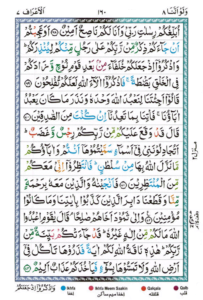 وَلَوْاَنَّنَا ٨ ١٦٠ اَلْاَعْرَاف ٧
اُبَلِّغُكُمْ رِسٰلٰتِ رَبِّیْ وَاَنَا لَكُمْ نَاصِحٌ اَمِیْنٌ اَوَعَجِبْتُمْ
اَنْ جَآءَكُمْ ذِكْرٌ مِّنْ رَّبِّكُمْ عَلٰی رَجُلٍ مِّنْكُمْ لِیُنْذِرَكُمْ
وَاذْكُرُوْۤا اِذْ جَعَلَكُمْ خُلَفَآءَ مِنْۢ بَعْدِ قَوْمِ نُوْحٍ وَّزَادَكُمْ
فِی الْخَلْقِ بَصْۜطَةً فَاذْكُرُوْۤا اٰلَآءَ اللّٰهِ لَعَلَّكُمْ تُفْلِحُوْنَ
قَالُوْۤا اَجِئْتَنَا لِنَعْبُدَ اللّٰهَ وَحْدَهٗ وَنَذَرَ مَا كَانَ یَعْبُدُ
اٰبَآؤُنَا فَاْتِنَا بِمَا تَعِدُنَاۤ اِنْ كُنْتَ مِنَ الصّٰدِقِیْنَ
قَالَ قَدْ وَقَعَ عَلَیْكُمْ مِّنْ رَّبِّكُمْ رِجْسٌ وَّغَضَبٌ
اَتُجَادِلُوْنَنِیْ فِیْۤ اَسْمَآءٍ سَمَّیْتُمُوْهَاۤ اَنْتُمْ وَاٰبَآؤُكُمْ
مَّا نَزَّلَ اللّٰهُ بِهَا مِنْ سُلْطٰنٍ فَانْتَظِرُوْۤا اِنِّیْ مَعَكُمْ
مِّنَ الْمُنْتَظِرِیْنَ فَاَنْجَیْنٰهُ وَالَّذِیْنَ مَعَهٗ بِرَحْمَةٍ
مِّنَّا وَقَطَعْنَا دَابِرَ الَّذِیْنَ كَذَّبُوْا بِاٰیٰتِنَا وَمَا كَانُوْا
مُؤْمِنِیْنَ وَاِلٰی ثَمُوْدَ اَخَاهُمْ صٰلِحًا قَالَ یٰقَوْمِ اعْبُدُوا
اللّٰهَ مَا لَكُمْ مِّنْ اِلٰهٍ غَیْرُهٗ قَدْ جَآءَتْكُمْ بَیِّنَةٌ مِّنْ
رَّبِّكُمْ هٰذِهٖ نَاقَةُ اللّٰهِ لَكُمْ اٰیَةً فَذَرُوْهَا تَاْكُلْ فِیْۤ
اَرْضِ اللّٰهِ وَلَا تَمَسُّوْهَا بِسُوْٓءٍ فَیَاْخُذَكُمْ عَذَابٌ اَلِیْمٌ
وَاذْكُرُوْۤا اِذْ جَعَلَكُمْ